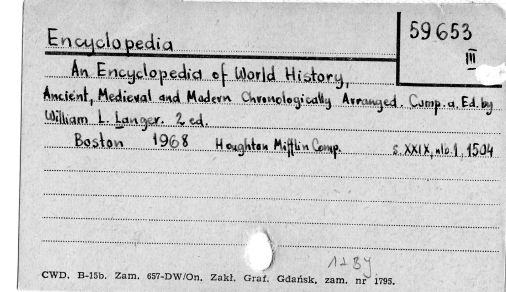 59653
III
Encyclopedia
An Encyclopedia of World History,
Ancient, Medieval and Modern Chronologically Arranged. Comp. a. Ed. by
William L. Langer. 2 ed.
Boston 1968 Houghton Mifflin Comp. s. XXIX, nlb. 1, 1504
CWD. B-15b. Zam. 657-DW/On. Zakł. Graf. Gdańsk, zam. nr 1795.